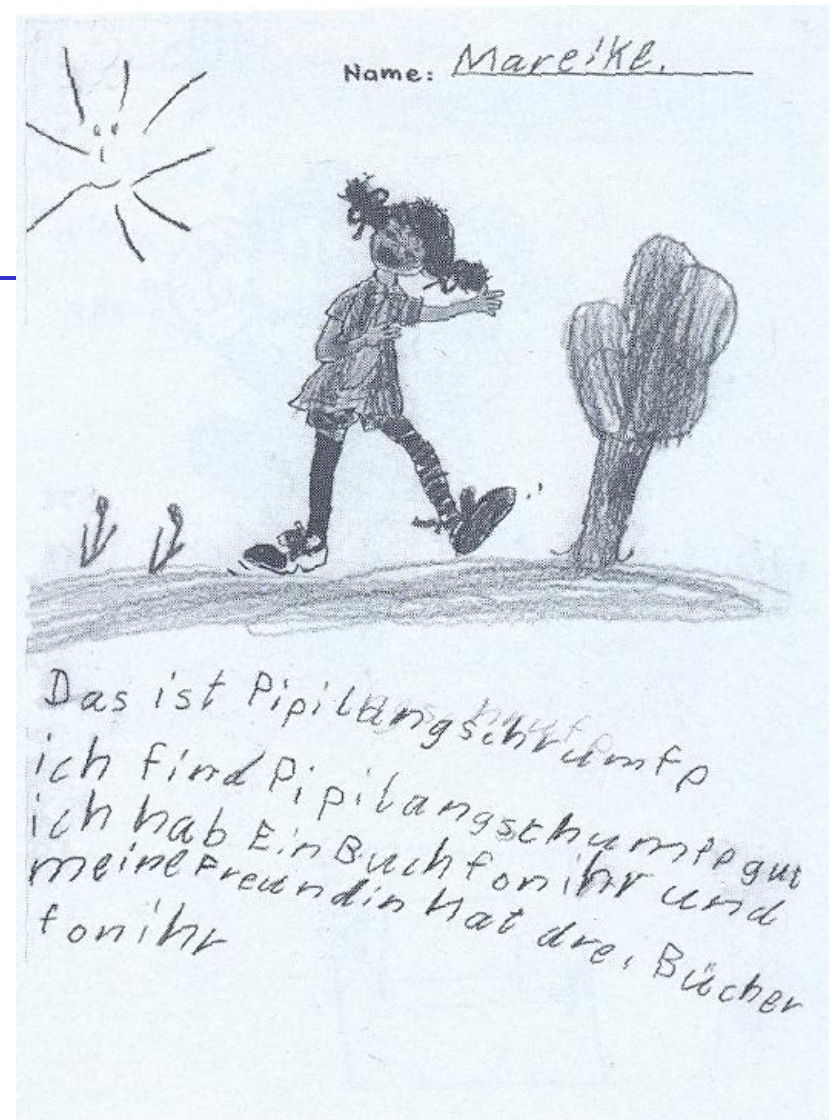 Name: Mareike.
Das ist Pipilangschrumfp
ich find Pipilangschumfp gut
ich hab Ein Buch fon ihr und
meine Freundin hat drei Bücher
fon ihr